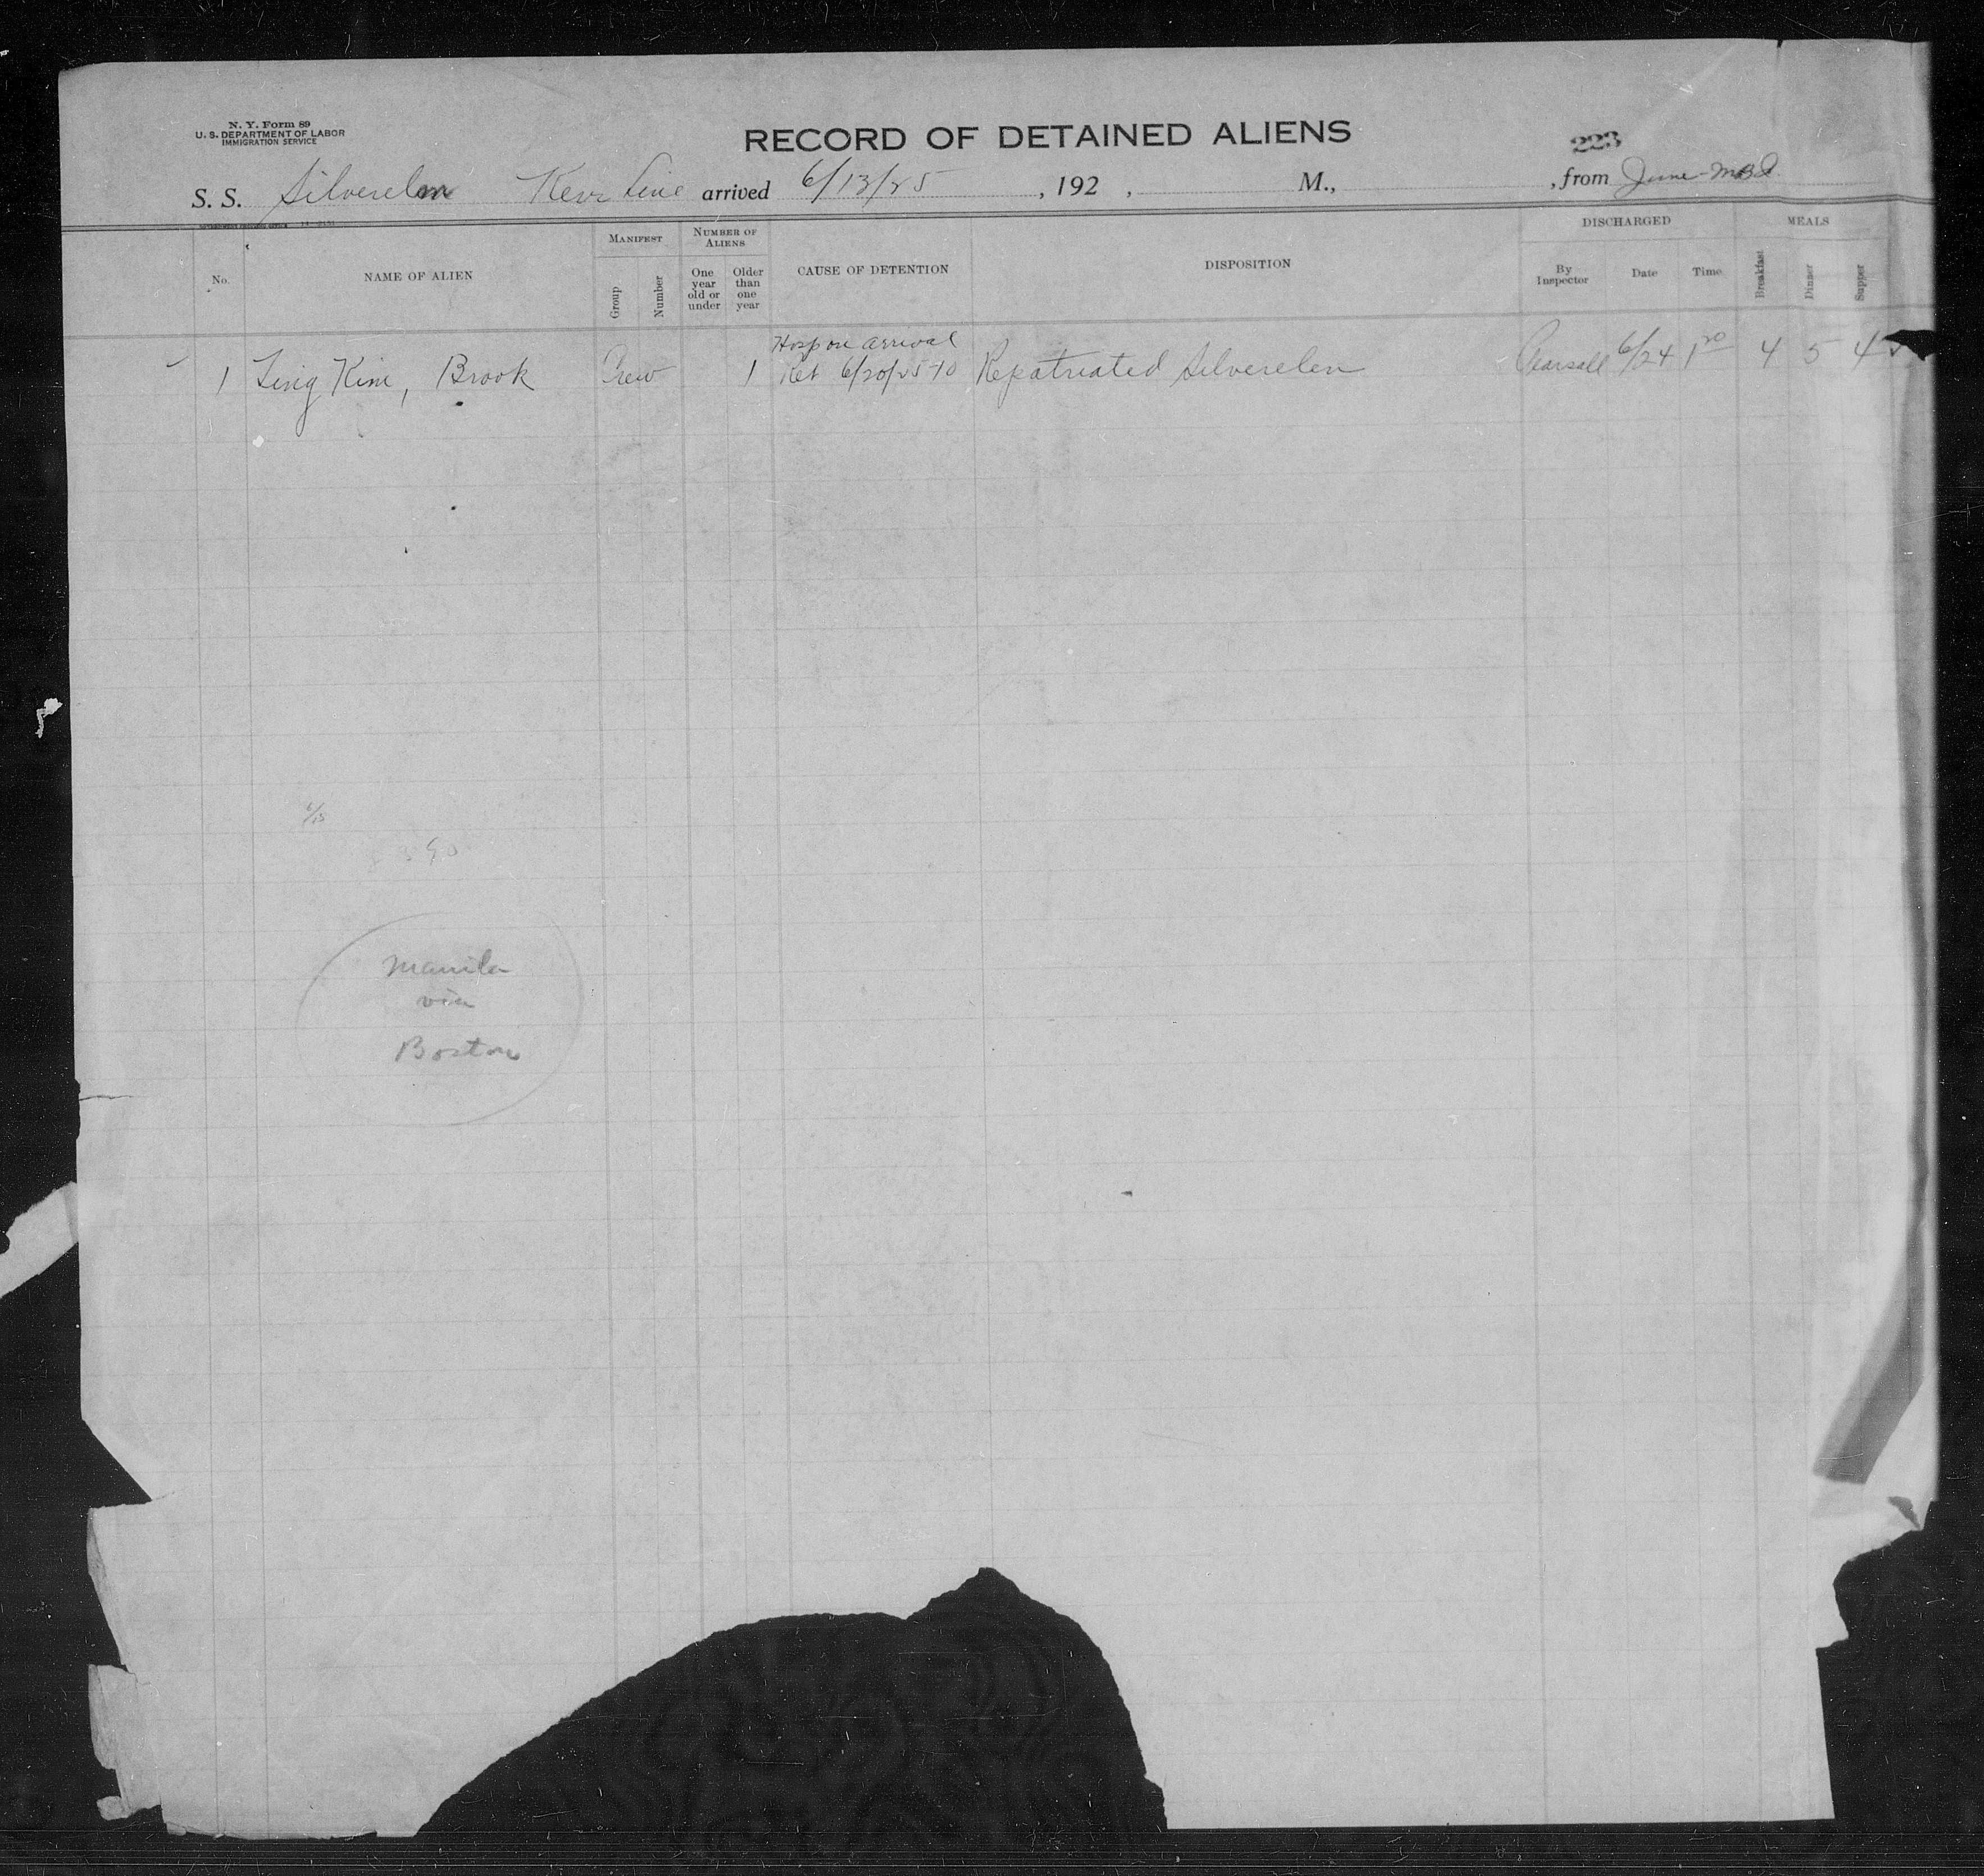 N. Y. Form 89
U. S. DEPARTMENT OF LABOR
IMMIGRATION SERVICE
RECORD OF DETAINED ALIENS
223
S. S. Silverelm Kerr Line arrived 6/13/25, 192 , M., , from June
DISCHARGED MEALS
MANIFEST NUMBER OF ALIENS
No. NAME OF ALIEN Group Number One year old or under Older than one year CAUSE OF DETENTION DISPOSITION By Inspector Date Time Breakfast Dinner Supper
Hosp on arrival
1 Ling Kim, Brook Crew 1 Ret 6/20/25-10 Repatriated Silverelm Pearsall 6/24 1 20 4 5 4
6/15
390
Manila
via
Boston